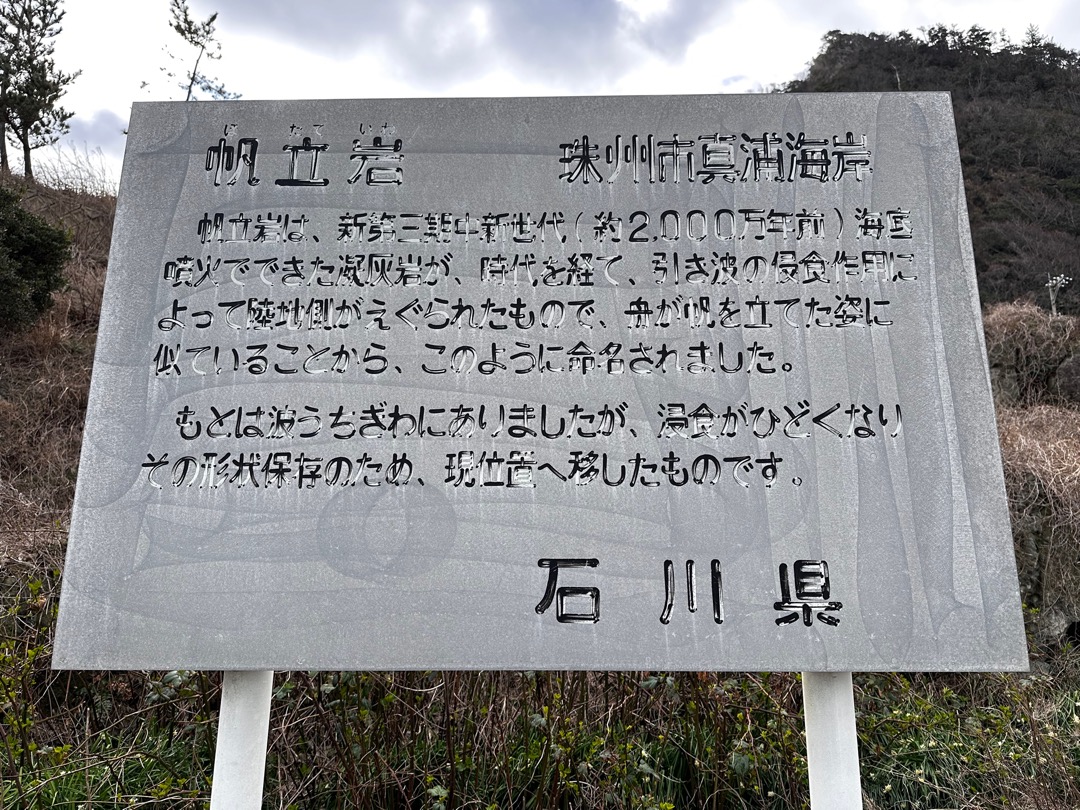 ほ たて いわ
帆立岩 珠州市真浦海岸
帆立岩は、新第三期中新世代(約2,000万年前)海底
噴火でできた凝灰岩が、時代を経て、引き波の侵食作用に
よって陸地側がえぐられたもので、舟が帆を立てた姿に
似ていることから、このように命名されました。
もとは波うちぎわにありましたが、浸食がひどくなり
その形状保存のため、現位置へ移したものです。
石川県